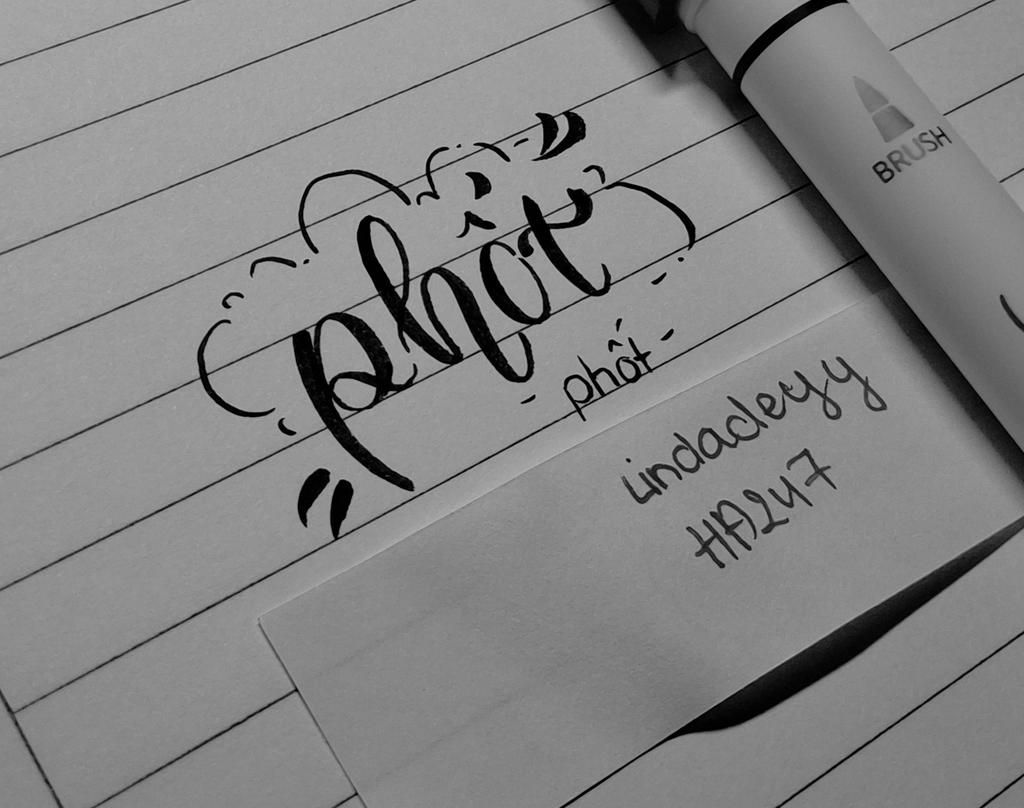 phốt
- phốt -
BRUSH
lindacleyy
HA247